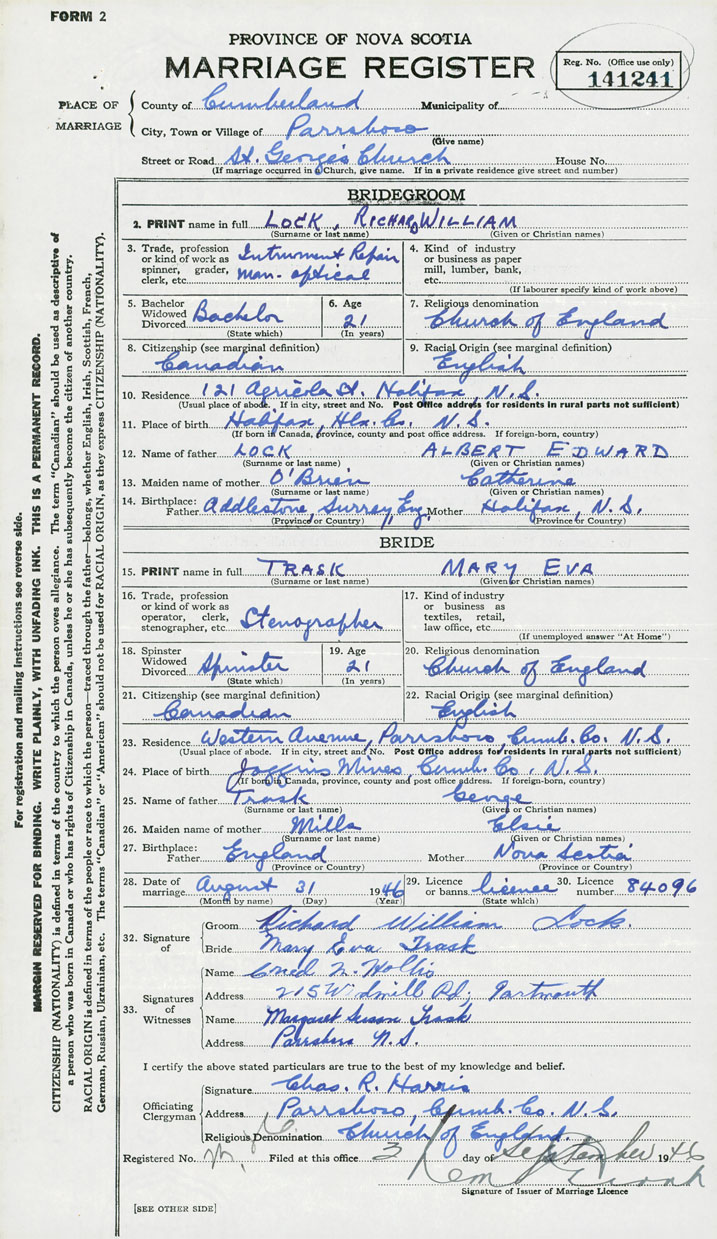 FORM 2
PROVINCE OF NOVA SCOTIA
MARRIAGE REGISTER
Reg. No. (Office use only)
141241
PLACE OF MARRIAGE
County of Cumberland Municipality of
City, Town or Village of Parrsboro
(Give name)
Street or Road St. George's Church House No.
(If marriage occurred in Church, give name. If in a private residence give street and number)
BRIDEGROOM
2. PRINT name in full LOCK, RICHARD WILLIAM
(Surname or last name) (Given or Christian names)
3. Trade, profession or kind of work as spinner, grader, clerk, etc. Intrument Repair man-optical
4. Kind of industry or business as paper mill, lumber, bank, etc.
(If labourer specify kind of work above)
5. Bachelor Widowed Divorced Bachelor
(State which)
6. Age 21
(In years)
7. Religious denomination
Church of England
8. Citizenship (see marginal definition)
Canadian
9. Racial Origin (see marginal definition)
English
10. Residence 121 Agricola St. Halifax, N.S.
(Usual place of abode. If in city, street and No. Post Office address for residents in rural parts not sufficient)
11. Place of birth Halifax, Hlx. Co. N.S.
(If born in Canada, province, county and post office address. If foreign-born, country)
12. Name of father LOCK ALBERT EDWARD
(Surname or last name) (Given or Christian names)
13. Maiden name of mother O'Brien Catherine
(Surname or last name) (Given or Christian names)
14. Birthplace: Father Addlestone, Surrey, Eng. Mother Halifax, N.S.
(Province or Country) (Province or Country)
BRIDE
15. PRINT name in full TRASK MARY EVA
(Surname or last name) (Given or Christian names)
16. Trade, profession or kind of work as operator, clerk, stenographer, etc. Stenographer
17. Kind of industry or business as textiles, retail, law office, etc.
(If unemployed answer "At Home")
18. Spinster Widowed Divorced Spinster
(State which)
19. Age 21
(In years)
20. Religious denomination
Church of England
21. Citizenship (see marginal definition)
Canadian
22. Racial Origin (see marginal definition)
English
23. Residence Western Avenue, Parrsboro, Cumb. Co. N.S.
(Usual place of abode. If in city, street and No. Post Office address for residents in rural parts not sufficient)
24. Place of birth Joggins Mines, Cumb. Co. N.S.
(If born in Canada, province, county and post office address. If foreign-born, country)
25. Name of father Trask George
(Surname or last name) (Given or Christian names)
26. Maiden name of mother Mills Elsie
(Surname or last name) (Given or Christian names)
27. Birthplace: Father England Mother Nova Scotia
(Province or Country) (Province or Country)
28. Date of marriage August 31 1946
(Month by name) (Day) (Year)
29. Licence or banns licence
(State which)
30. Licence number 84096
32. Signature of
Groom Richard William Lock.
Bride Mary Eva Trask
33. Signatures of Witnesses
Name N. Hollis
Address 215 Windmill Rd, Dartmouth
Name Margaret Susan Trask
Address Parrsboro N.S.
I certify the above stated particulars are true to the best of my knowledge and belief.
Officiating Clergyman
Signature Chas. R. Harris
Address Parrsboro, Cumb. Co. N.S.
Religious Denomination Church of England.
Registered No. Filed at this office 3 day of September 1946
Signature of Issuer of Marriage Licence
[SEE OTHER SIDE]
For registration and mailing instructions see reverse side.
MARGIN RESERVED FOR BINDING. WRITE PLAINLY, WITH UNFADING INK. THIS IS A PERMANENT RECORD.
CITIZENSHIP (NATIONALITY) is defined in terms of the country to which the person owes allegiance. The term "Canadian" should be used as descriptive of
a person who was born in Canada or who has rights of Citizenship in Canada, unless he or she has subsequently become the citizen of another country.
RACIAL ORIGIN is defined in terms of the people or race to which the person—traced through the father—belongs, whether English, Irish, Scottish, French,
German, Russian, Ukrainian, etc. The terms "Canadian" or "American" should not be used for RACIAL ORIGIN, as they express CITIZENSHIP (NATIONALITY).